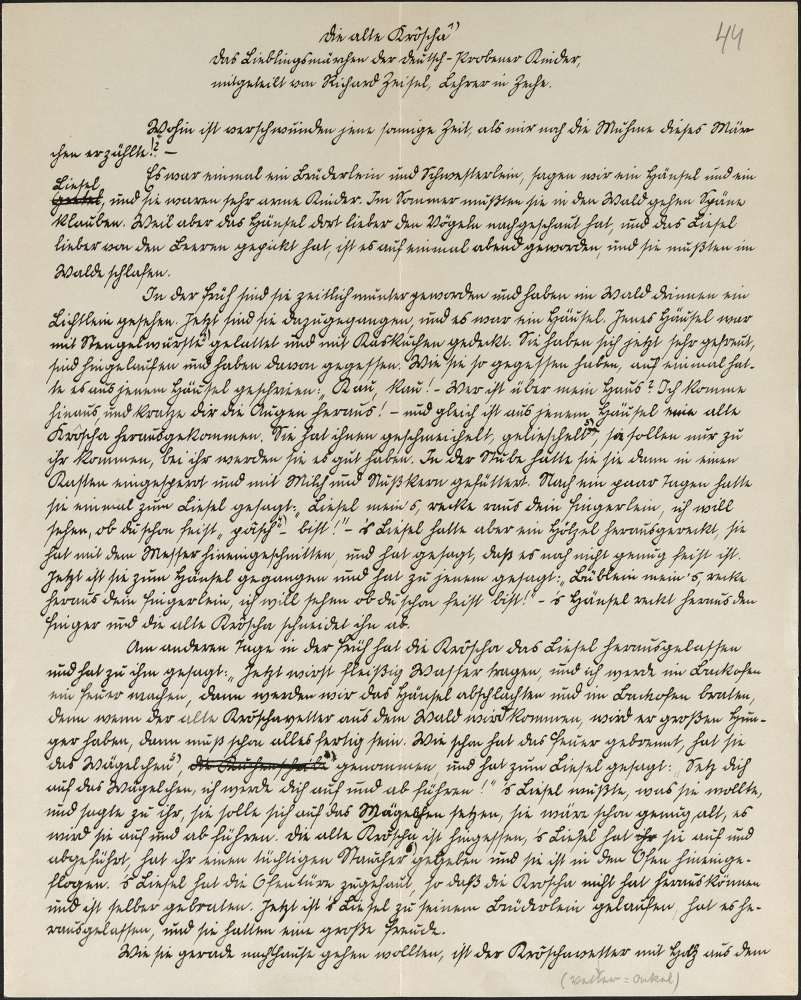 44
Die alte Kröscha¹)
Das Lieblingsmärchen der Deutsch-Probener Kinder,
mitgeteilt von Richard Zeisel, Lehrer in Zeche.
Wohin ist verschwunden jene sonnige Zeit, als mir noch die Muhme dieses Mär-
chen erzählte!? –
Es war einmal ein Brüderlein und Schwesterlein, sagen wir ein Hänsel und ein
Liesel
, und sie waren sehr arme Kinder. Im Sommer mußten sie in den Wald gehen Späne
klauben. Weil aber das Hänsel dort lieber den Vögeln nachgeschaut hat, und das Liesel
lieber von den Beeren gepickt hat, ist es auf einmal abend geworden, und sie mußten im
Walde schlafen.
In der Früh sind sie zeitlich munter geworden und haben im Wald drinnen ein
Lichtlein gesehen. Jetzt sind sie dazugegangen, und es war ein Häusel. Jenes Häusel war
mit Stengelwürste gelattet und mit Käskuchen gedeckt. Sie haben sich jetzt sehr gefreut,
sind hingelaufen und haben davon gegessen. Wie sie so gegessen haben, auf einmal hat-
te es aus jenem Häusel geschrieen: „Kau, kau! – Wer ist über mein Haus? Ich komme
hinaus und kratze dir die Augen heraus! – und gleich ist aus jenem Häusel eine alte
Kröscha herausgekommen. Sie hat ihnen geschmeichelt, gelieschelt, sie sollen nur zu
ihr kommen, bei ihr werden sie es gut haben. In der Stube hatte sie sie dann in einen
Kasten eingesperrt und mit Milch und Nußkern gefüttert. Nach ein paar Tagen hatte
sie einmal zum Liesel gesagt: „Liesel mein's, recke raus dein Fingerlein, ich will
sehen, ob du schon feist „päsch" bist!" – 's Liesel hatte aber ein Hölzel herausgereckt, sie
hat mit dem Messer hineingeschnitten, und hat gesagt, daß es noch nicht genug feist ist.
Jetzt ist sie zum Hänsel gegangen und hat zu jenem gesagt: „Büblein mein's, recke
heraus dein Fingerlein, ich will sehen ob du schon feist bist!" – 's Hänsel reckt heraus den
Finger und die alte Kröscha schneidet ihn ab.
Am anderen Tage in der Früh hat die Kröscha das Liesel herausgelassen
und hat zu ihm gesagt: „Jetzt wirst fleißig Wasser tragen, und ich werde im Backofen
ein Feuer machen, dann werden wir das Hänsel abschlachten und im Backofen braten,
denn wenn der alte Kröschavetter aus dem Wald wird kommen, wird er großen Hun-
ger haben, dann muß schon alles fertig sein. Wie schon hat das Feuer gebrennt, hat sie
das Wägelchen, die Kuchenscheibe genommen, und hat zum Liesel gesagt: „Setz dich
auf das Wägelchen, ich werde dich auf und ab führen!" 's Liesel wußte, was sie wollte,
und sagte zu ihr, sie solle sich auf das Wägelchen setzen, sie wäre schon genug alt, es
wird sie auf und ab führen. Die alte Kröscha ist hingesessen, 's Liesel hat ihr sie auf und
abgeführt, hat ihr einen tüchtigen Staucher gegeben und sie ist in den Ofen hineinge-
flogen. 's Liesel hat die Ofentüre zugehaut, so daß die Kröscha nicht hat heraus können
und ist selber gebraten. Jetzt ist 's Liesel zu seinem Brüderlein gelaufen, hat es he-
rausgelassen, und sie hatten eine große Freude.
Wie sie gerade nachhause gehen wollten, ist der Kröschavetter mit Holz aus dem
(Vetter = Onkel)